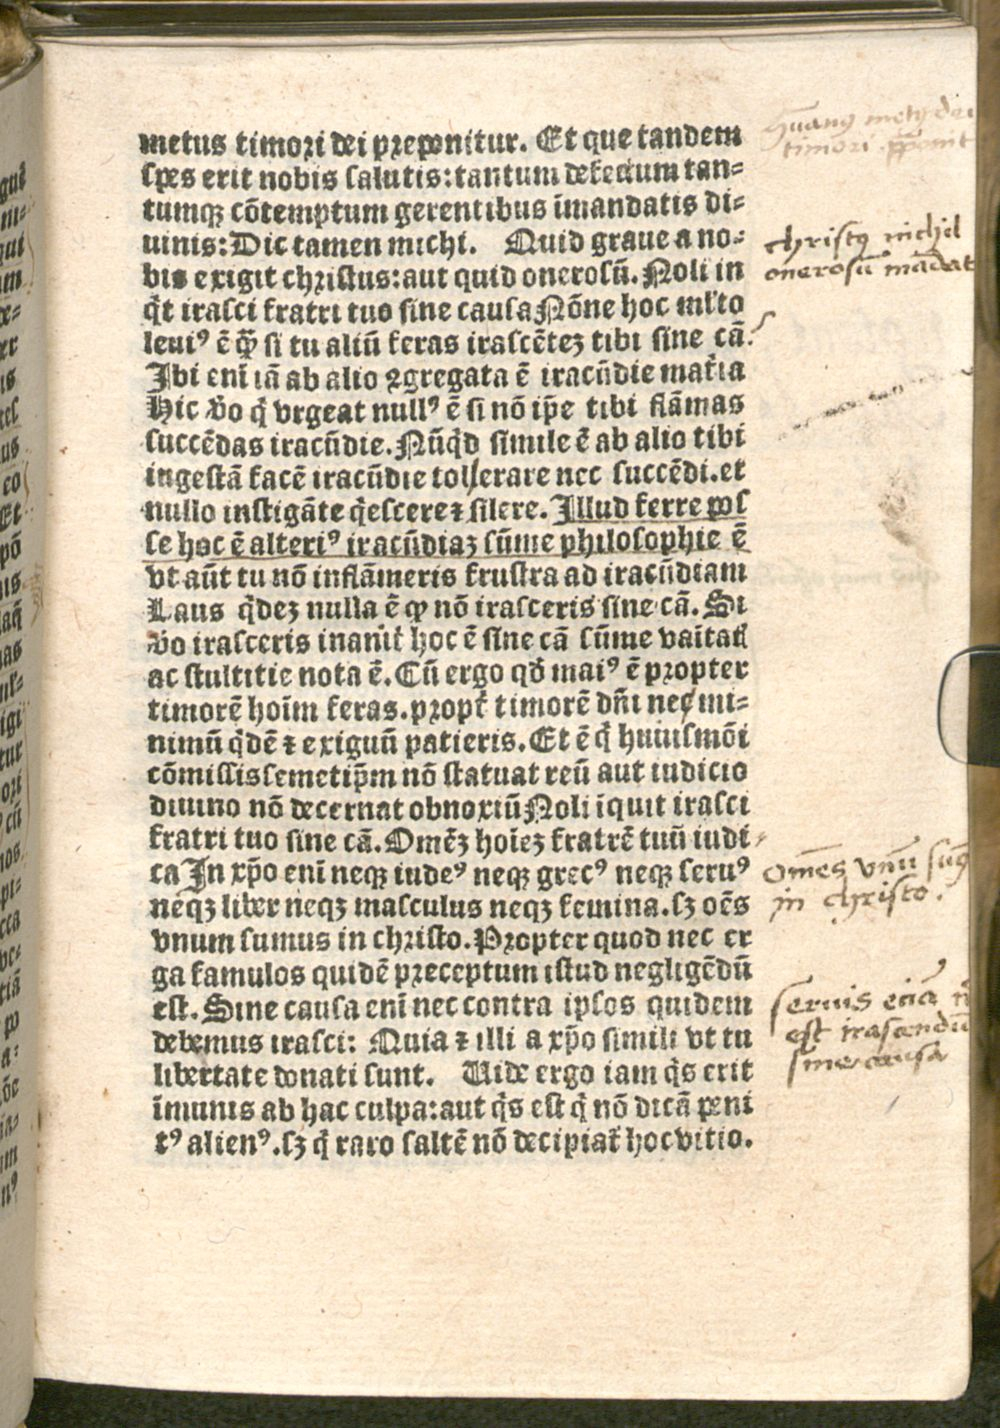 metus timori dei preponitur. Et que tandem
spes erit nobis salutis: tantum defectum tan-
tumqꝫ cōtemptum gerentibus ī mandatis di-
uinis: Dic tamen michi. Quid graue a no-
bis exigit christus: aut quid onerosū. Noli in
q̇t irasci fratri tuo sine causa Nōne hoc ml'to
leuiꝰ ē ꝙ̄ si tu aliū feras irascētez tibi sine cā.
Ibi enī iā ab alio ꝯgregata ē iracūdie mat̄ia
Hic v̄o q̇ vrgeat nullꝰ ē si nō ip̄e tibi flāmas
succēdas iracūdie. Nūq̇d simile ē ab alio tibi
ingestā facē iracūdie tollerare nec succēdi. et
nullo instigāte q̇escere ⁊ silere. Illud ferre pos
se hoc ē alteriꝰ iracūdiaꝫ sūme philosophie ē
vt aūt tu nō inflāmeris frustra ad iracūdiam
Laus q̇dez nulla ē ꝙ nō irasceris sine cā. Si
v̄o irasceris inanit̄ hoc ē sine cā sūme vaītatis
ac stultitie nota ē. Cū ergo qd̄ maiꝰ ē propter
timorē hoīm feras. propt̄ timorē dn̄i nec mi-
nimū q̇dē ⁊ exiguū patieris. Et ē q̇ huiusmōi
cōmissis semetip̄m nō statuat reū aut iudicio
diuino nō decernat obnoxiū Noli īquit irasci
fratri tuo sine cā. Omēz hoīez fratrē tuū iudi-
ca In xp̄o enī neqꝫ iudeꝰ neqꝫ grecꝰ neqꝫ seruꝰ
neqꝫ liber neqꝫ masculus neqꝫ femina. sꝫ oēs
vnum sumus in christo. Propter quod nec er
ga famulos quidē preceptum istud negligēdū
est. Sine causa enī nec contra ipsos quidem
debemus irasci: Quia ⁊ illi a xp̄o simili vt tu
libertate donati sunt. Uide ergo iam q̇s erit
īmunis ab hac culpa: aut q̇s est q̇ nō dicā peni
tꝰ alienꝰ. sꝫ q̇ raro saltē nō decipiat̄ hoc vitio.
timori
christꝰ nichil
onerosū mādat
Om̄es vnū sumꝰ
in christo.
seruis eciā nō
est irascendū
sine causa